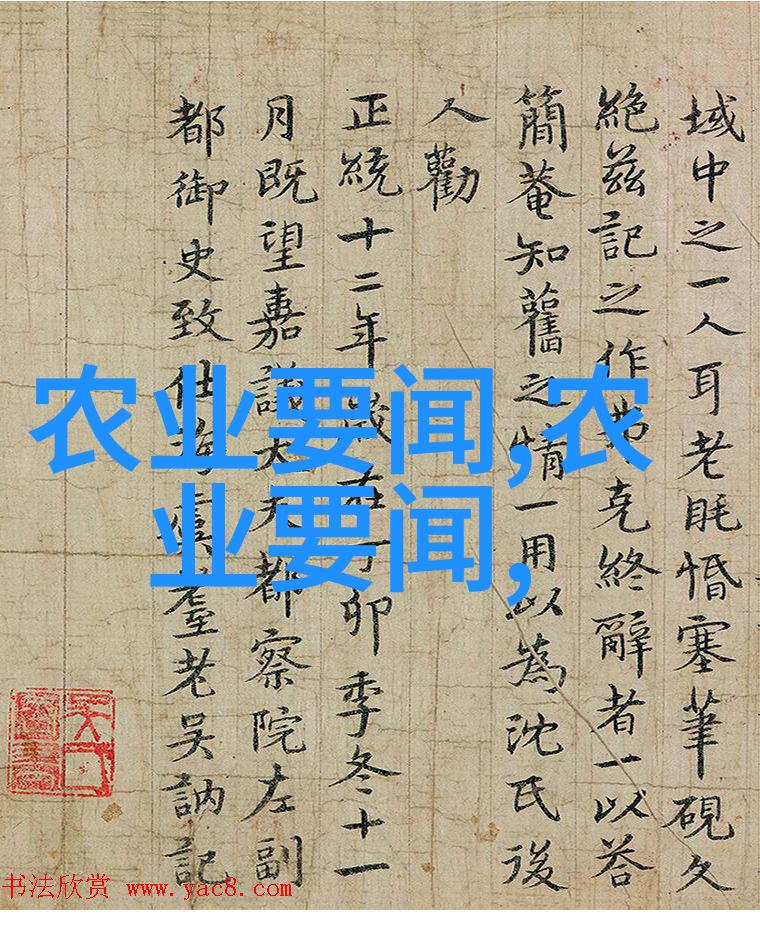 域中之一人耳老眊惛塞筆硯久
絶兹記之作弗克終辭者一以荅
簡菴知舊之情一用以為沈氏後
人勸
正統十二年歲在丁卯季冬十一
月既望嘉議大夫都察院左副
都御史致仕海虞耋老吳訥記
农业要闻,农
业要闻,
书法欣赏 www.yac8.com